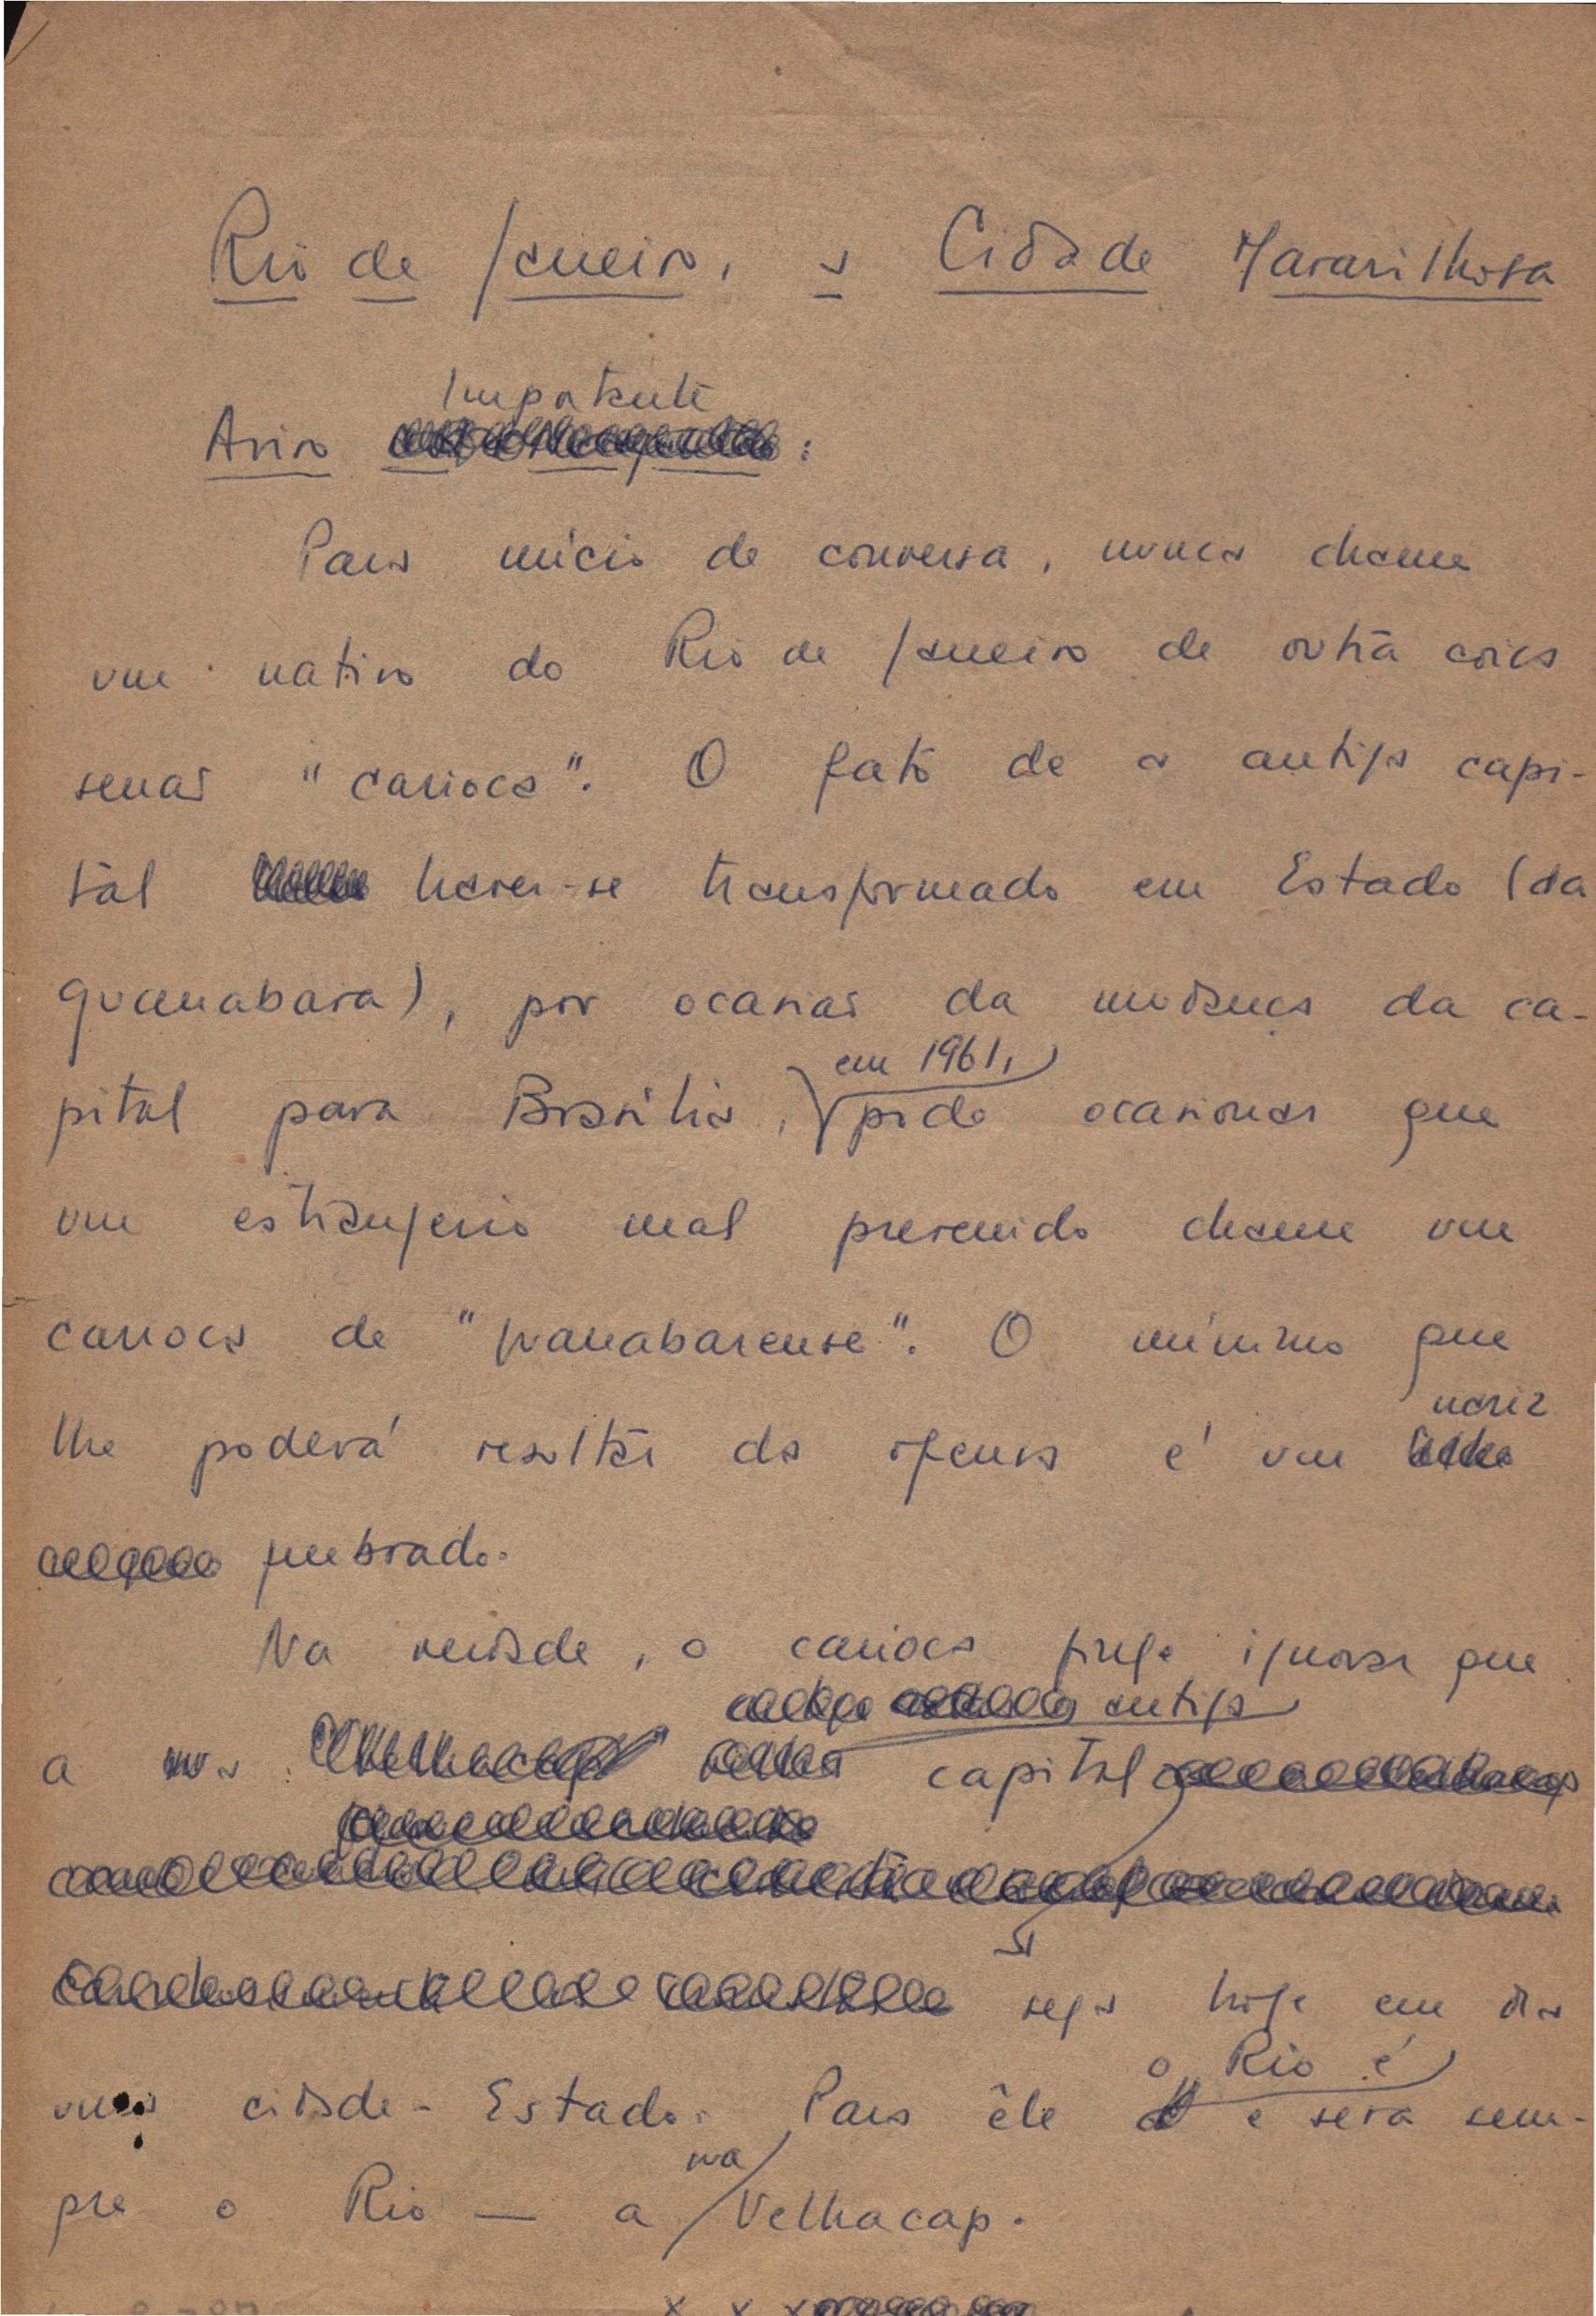 Rio de Janeiro, a Cidade Maravilhosa
Importante
Aviso :
Para início de conversa, nunca chame
um nativo do Rio de Janeiro de outra coisa
senão "carioca". O fato de a antiga capi-
tal haver-se transformado em Estado (da
Guanabara), por ocasião da mudança da ca-
em 1961,
pital para Brasília, pode ocasionar que
um estrangeiro mal prevenido chame um
carioca de "guanabarense". O mínimo que
nariz
lhe poderá resultar da ofensa é um
quebrado.
Na verdade, o carioca finge ignorar que
antiga
a sua capital
seja hoje em dia
o Rio é
uma cidade-Estado. Para êle e será sem-
sua
pre o Rio — a Velhacap.
x x x